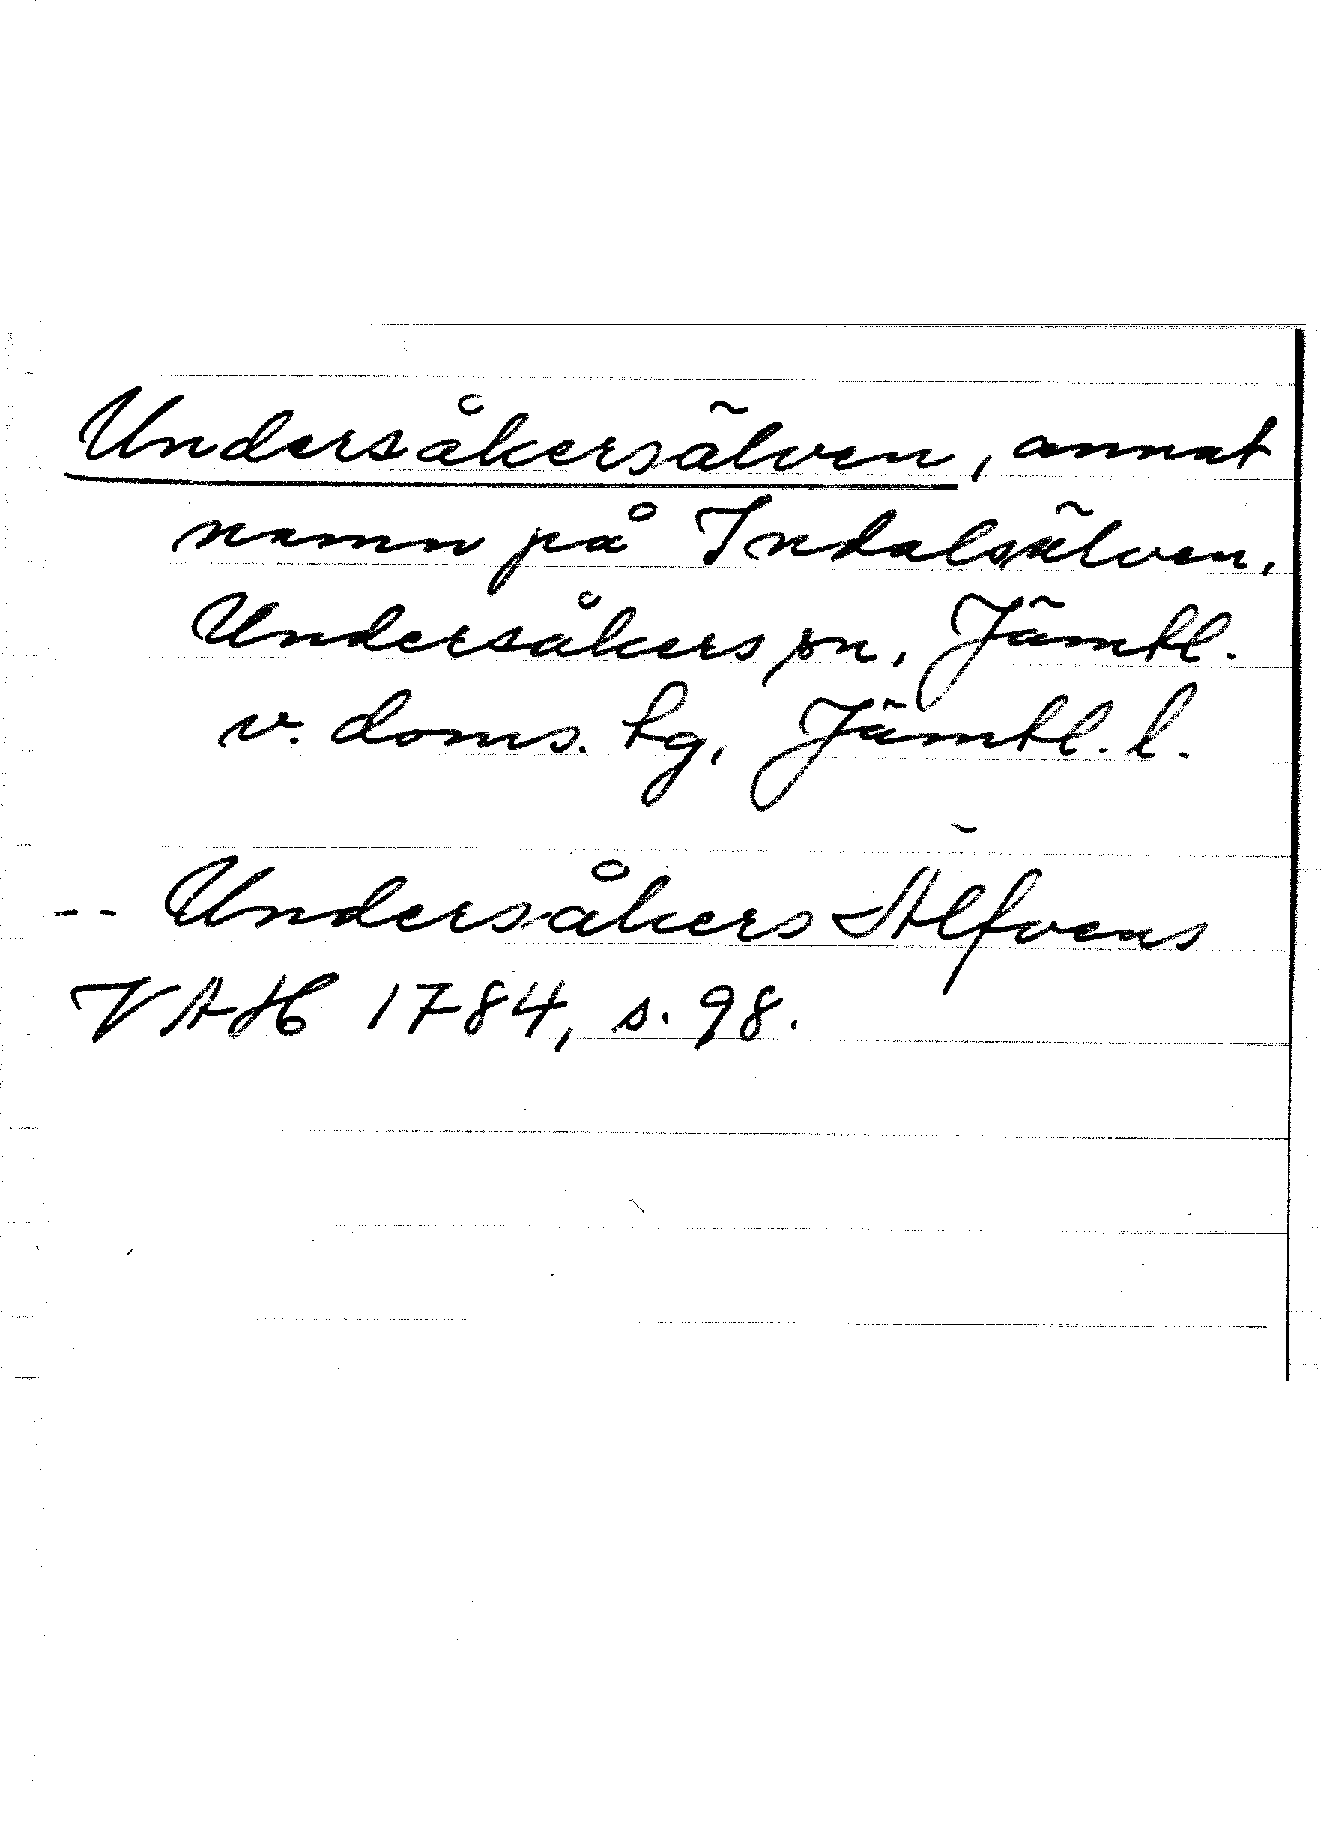 Undersåkersälven, annat
namn på Indalsälven.
Undersåkers sn, Jämtl.
v. doms. tg, Jämtl. l.
-- Undersåkers Älfvens
VAH 1784, s. 98.